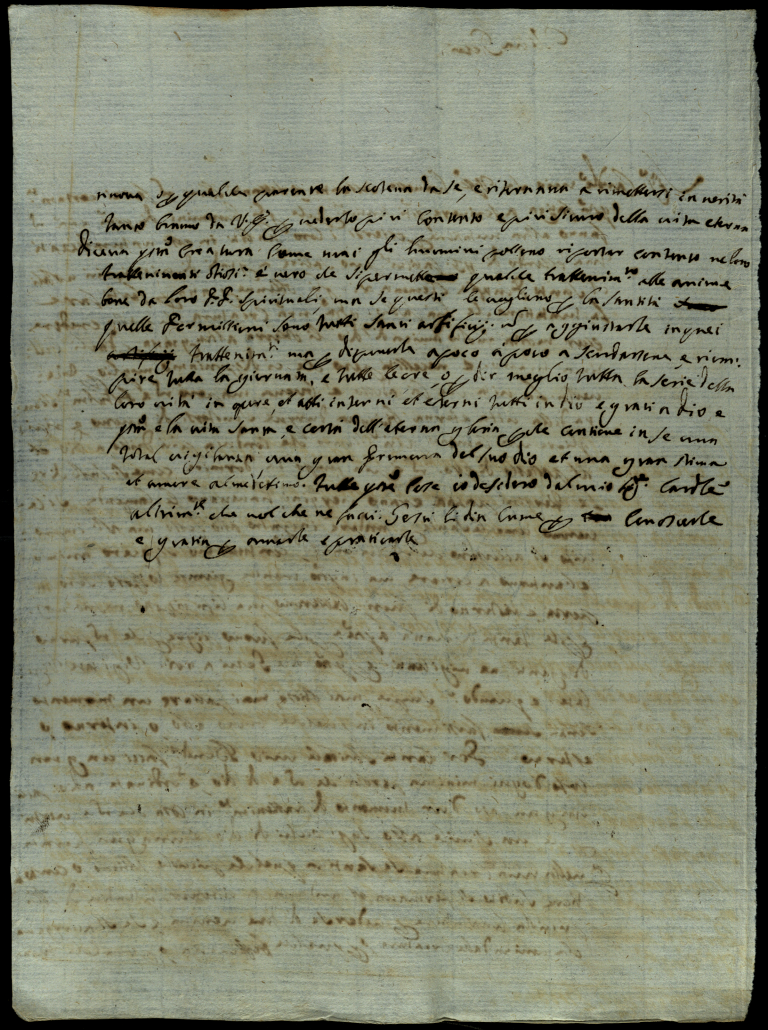 muova o p qualche parente la scotena da se, e ritornava a rimettersi in verità
tanto bramo da V.S. p vederlo più contento e più sicuro della vita eterna
diceva qsta creatura come mai gli huomini possono riportar contento ne loro
trattenimenti è vero che si permette qualche trattenimto alle anime
bone da loro P.P. spirituali, ma se questi le vogliono p la santità
quelle permissioni sono tutti santi artificij nō p aggiustarle in quei
trattenimti ma p disporle a poco à poco a scordarsene, e riem:
pire tutta la giornata, e tutte le ore, o p dir meglio, tutta la serie della
loro vita in opere, et atti interni et esterni tutti in dio e grati a dio e
qsta è la vita santa, e certa dell'eterna gloria che contiene in se una
total vigilanza una gran premura del suo dio et una gran stima
et amore al medesimo. Tutte qste cose io desidero dal mio Sigr. Cardle
altrimte che vol che ne facci. Gesù li dia lume p conoscerle
e grazia p amarle e praticarle